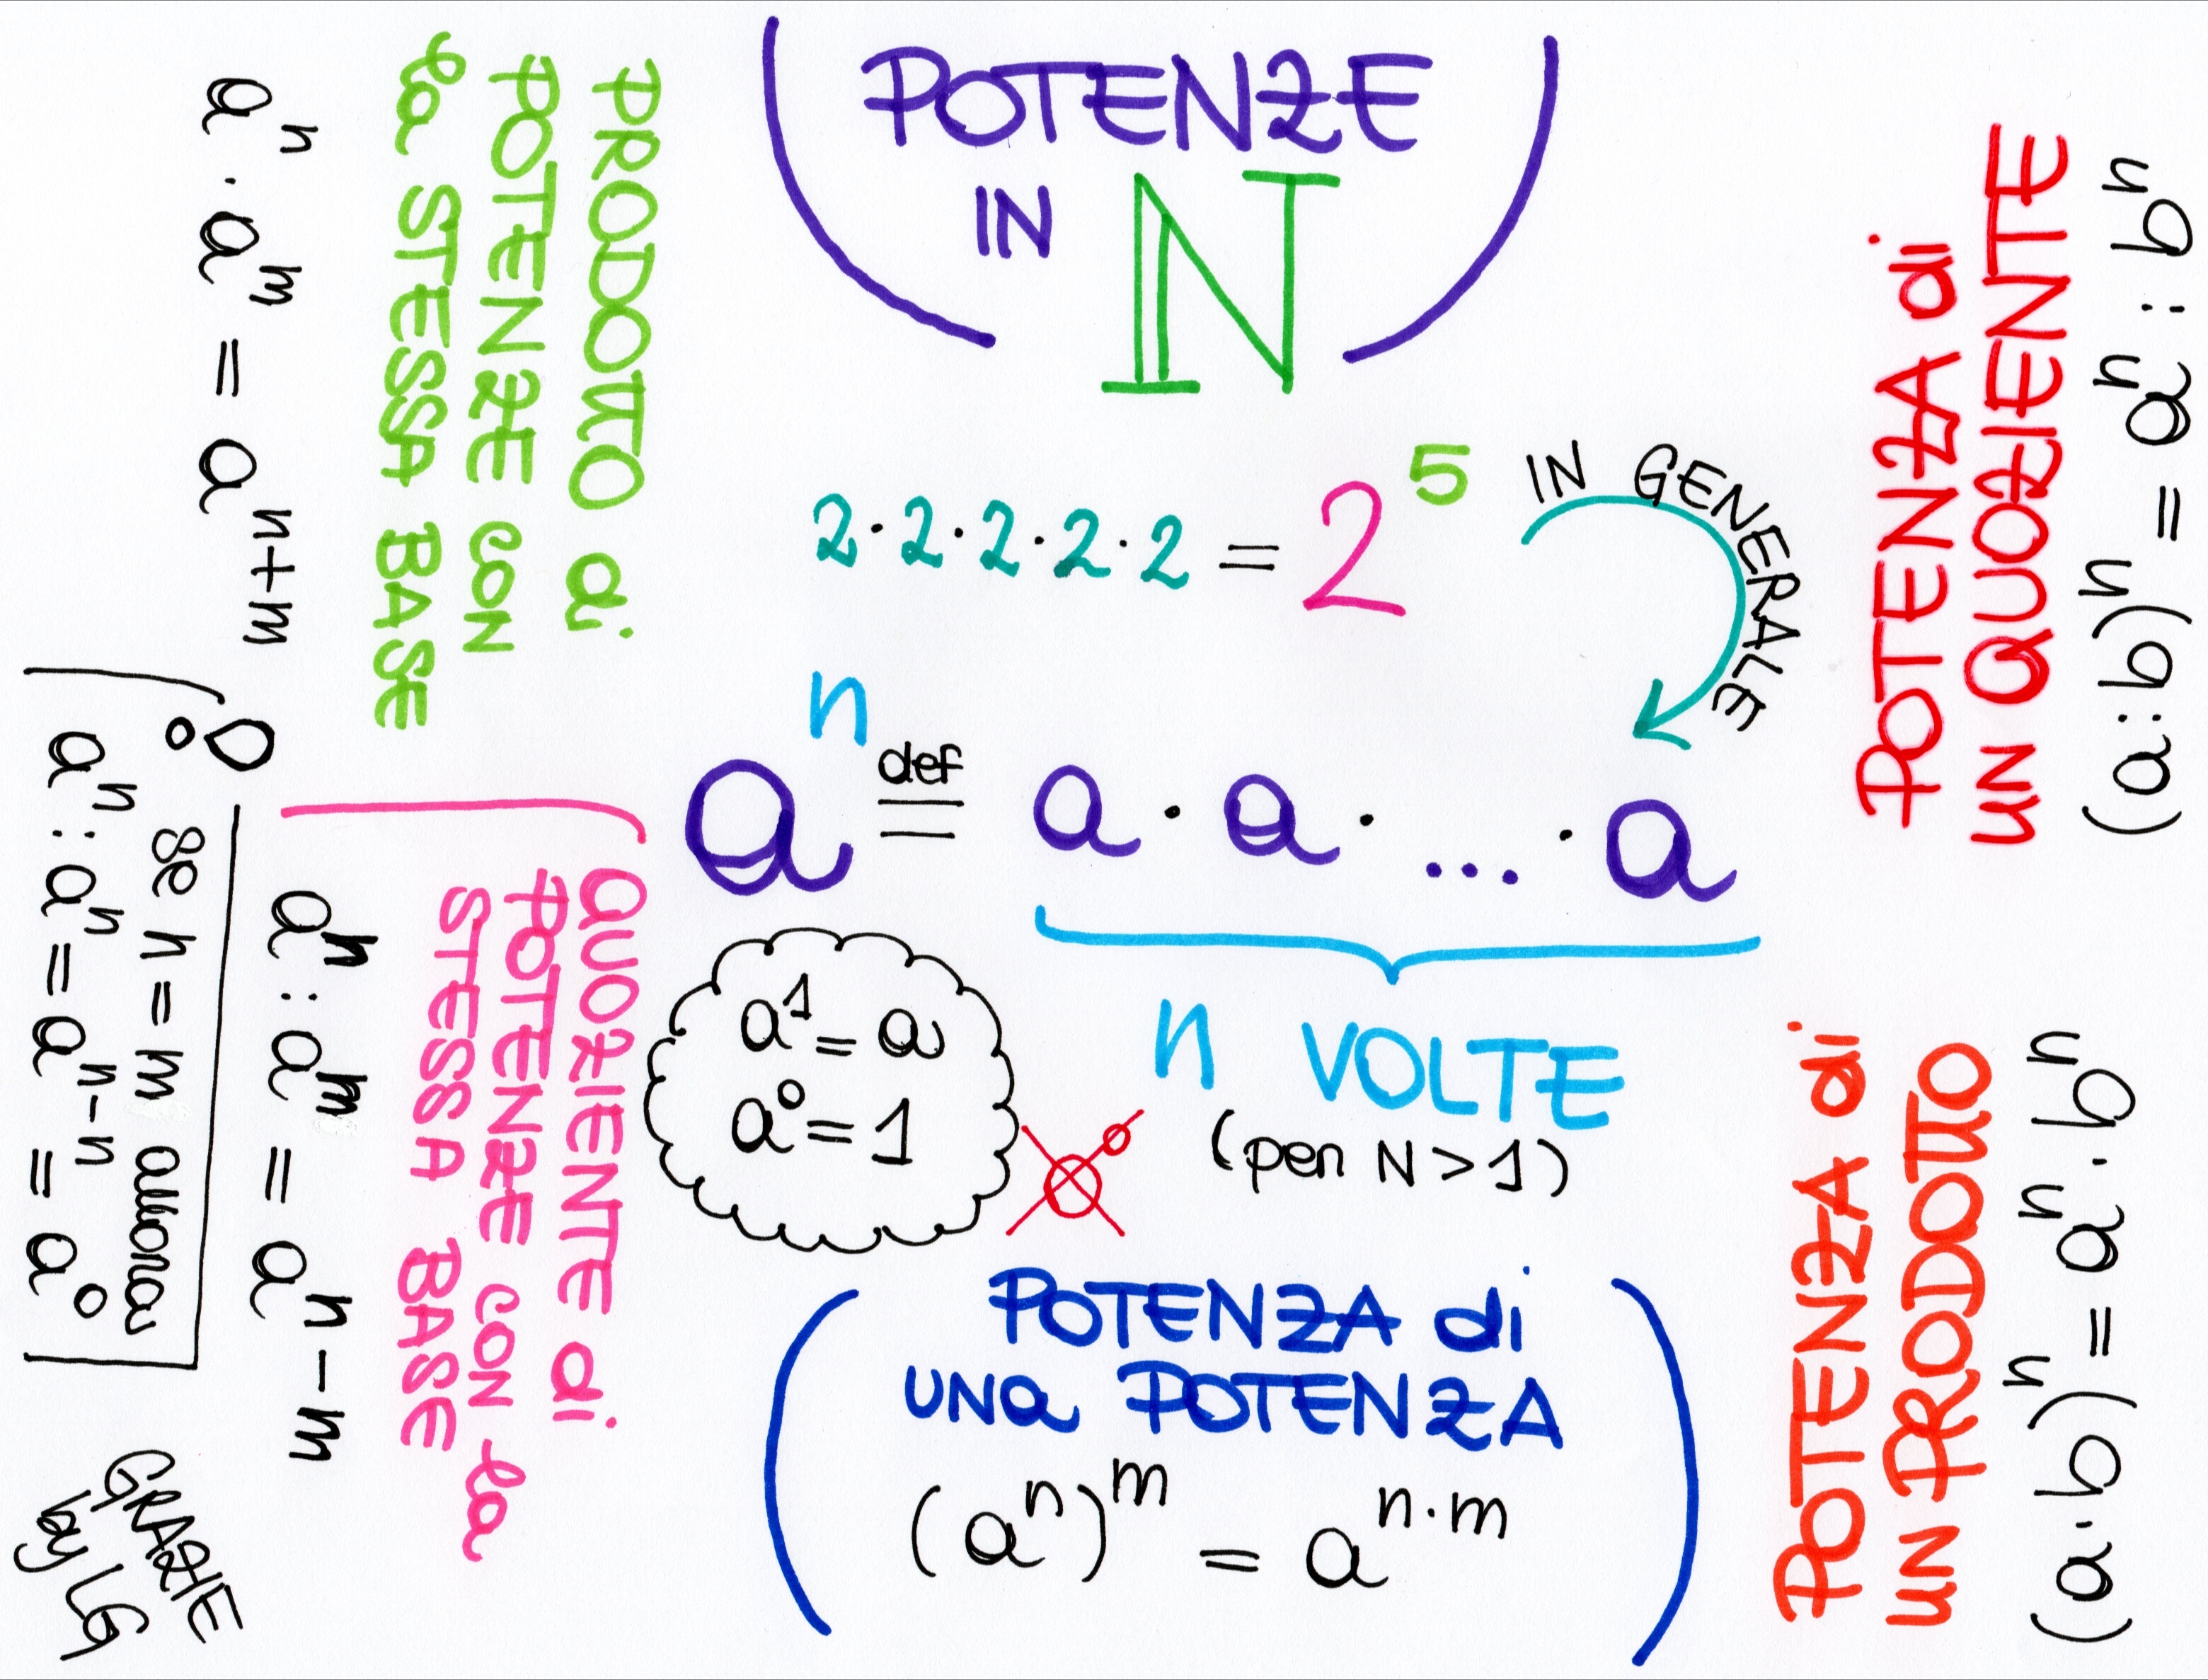 POTENZE
IN ℕ
2·2·2·2·2 = 2⁵
IN GENERALE
aⁿ def= a · a · ... · a
n VOLTE
(per N > 1)
a¹ = a
a⁰ = 1
0⁰
POTENZA di
UNa POTENZA
(aⁿ)ᵐ = aⁿ·ᵐ
PRODOTTO di
POTENZE CON
la STESSA BASE
aⁿ · aᵐ = aⁿ⁺ᵐ
QUOZIENTE di
POTENZE CON la
STESSA BASE
aⁿ : aᵐ = aⁿ⁻ᵐ
se n = m allora
aⁿ : aⁿ = aⁿ⁻ⁿ = a⁰
GRASIE
by LG
POTENZA di
UN QUOZIENTE
(a : b)ⁿ = aⁿ : bⁿ
POTENZA di
UN PRODOTTO
(a · b)ⁿ = aⁿ · bⁿ